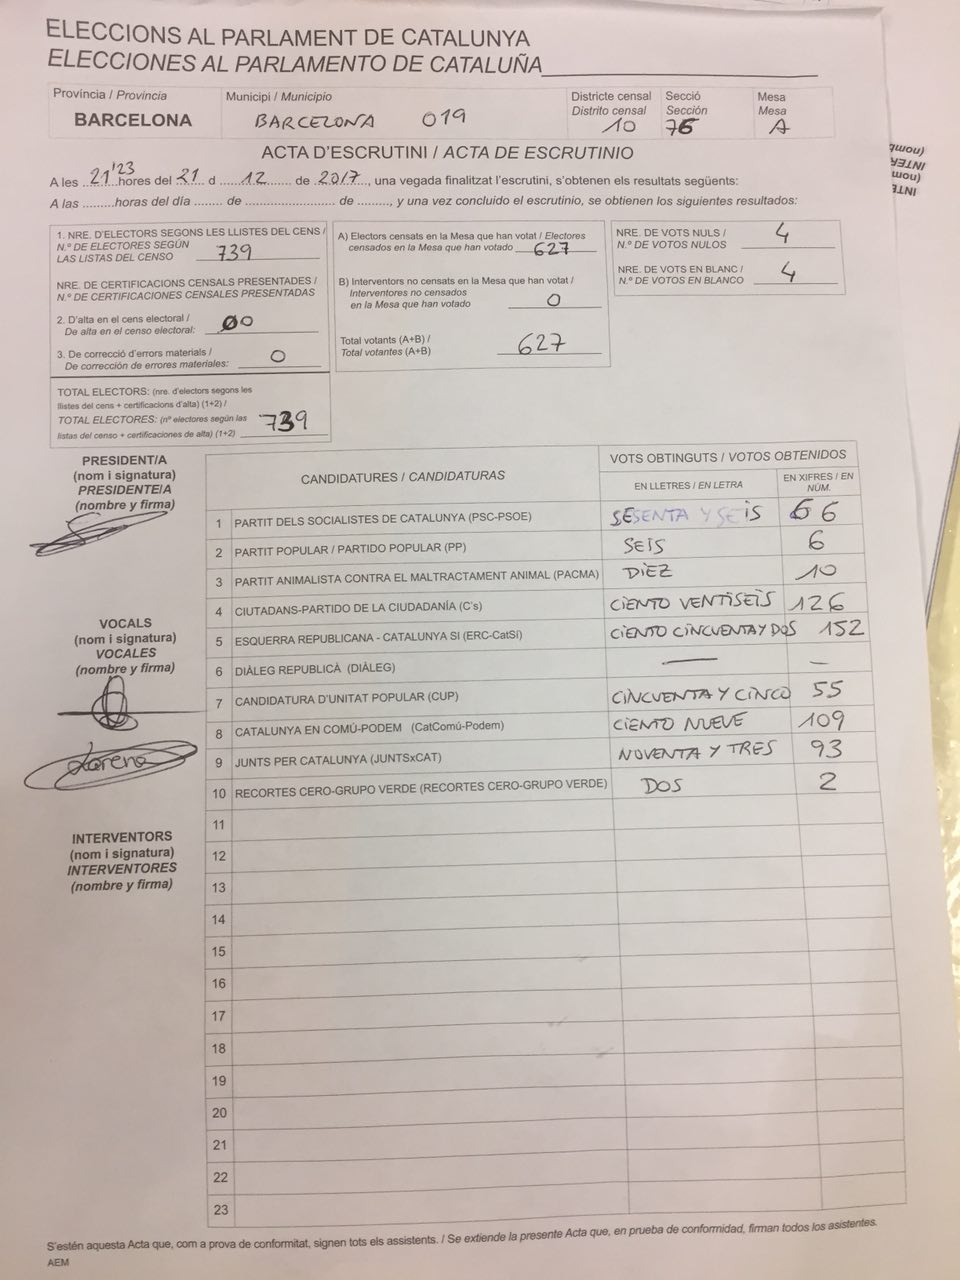 ELECCIONS AL PARLAMENT DE CATALUNYA
ELECCIONES AL PARLAMENTO DE CATALUÑA
Província / Provincia
BARCELONA
Municipi / Municipio
BARCELONA 019
Districte censal
Distrito censal
10
Secció
Sección
76
Mesa
Mesa
A
ACTA D'ESCRUTINI / ACTA DE ESCRUTINIO
A les 21'23 hores del 21 d 12 de 2017, una vegada finalitzat l'escrutini, s'obtenen els resultats següents:
A las .........horas del día ........ de ......................... de ........., y una vez concluido el escrutinio, se obtienen los siguientes resultados:
1. NRE. D'ELECTORS SEGONS LES LLISTES DEL CENS /
N.º DE ELECTORES SEGÚN
LAS LISTAS DEL CENSO 739
NRE. DE CERTIFICACIONS CENSALS PRESENTADES /
N.º DE CERTIFICACIONES CENSALES PRESENTADAS
2. D'alta en el cens electoral /
De alta en el censo electoral: 00
3. De correcció d'errors materials /
De corrección de errores materiales: 0
TOTAL ELECTORS: (nre. d'electors segons les
llistes del cens + certificacions d'alta) (1+2) /
TOTAL ELECTORES: (nº electores según las
listas del censo + certificaciones de alta) (1+2) 739
A) Electors censats en la Mesa que han votat / Electores
censados en la Mesa que han votado 627
B) Interventors no censats en la Mesa que han votat /
Interventores no censados
en la Mesa que han votado 0
Total votants (A+B) /
Total votantes (A+B) 627
NRE. DE VOTS NULS /
N.º DE VOTOS NULOS 4
NRE. DE VOTS EN BLANC /
N.º DE VOTOS EN BLANCO 4
PRESIDENT/A
(nom i signatura)
PRESIDENTE/A
(nombre y firma)
VOCALS
(nom i signatura)
VOCALES
(nombre y firma)
Lorena
INTERVENTORS
(nom i signatura)
INTERVENTORES
(nombre y firma)
CANDIDATURES / CANDIDATURAS
VOTS OBTINGUTS / VOTOS OBTENIDOS
EN LLETRES / EN LETRA
EN XIFRES / EN NÚM.
1 PARTIT DELS SOCIALISTES DE CATALUNYA (PSC-PSOE) SESENTA Y SEIS 66
2 PARTIT POPULAR / PARTIDO POPULAR (PP) SEIS 6
3 PARTIT ANIMALISTA CONTRA EL MALTRACTAMENT ANIMAL (PACMA) DIEZ 10
4 CIUTADANS-PARTIDO DE LA CIUDADANÍA (C's) CIENTO VENTISEIS 126
5 ESQUERRA REPUBLICANA - CATALUNYA SI (ERC-CatSí) CIENTO CINCUENTA Y DOS 152
6 DIÀLEG REPUBLICÀ (DIÀLEG) — —
7 CANDIDATURA D'UNITAT POPULAR (CUP) CINCUENTA Y CINCO 55
8 CATALUNYA EN COMÚ-PODEM (CatComú-Podem) CIENTO NUEVE 109
9 JUNTS PER CATALUNYA (JUNTSxCAT) NOVENTA Y TRES 93
10 RECORTES CERO-GRUPO VERDE (RECORTES CERO-GRUPO VERDE) DOS 2
11
12
13
14
15
16
17
18
19
20
21
22
23
S'estén aquesta Acta que, com a prova de conformitat, signen tots els assistents. / Se extiende la presente Acta que, en prueba de conformidad, firman todos los asistentes.
AEM